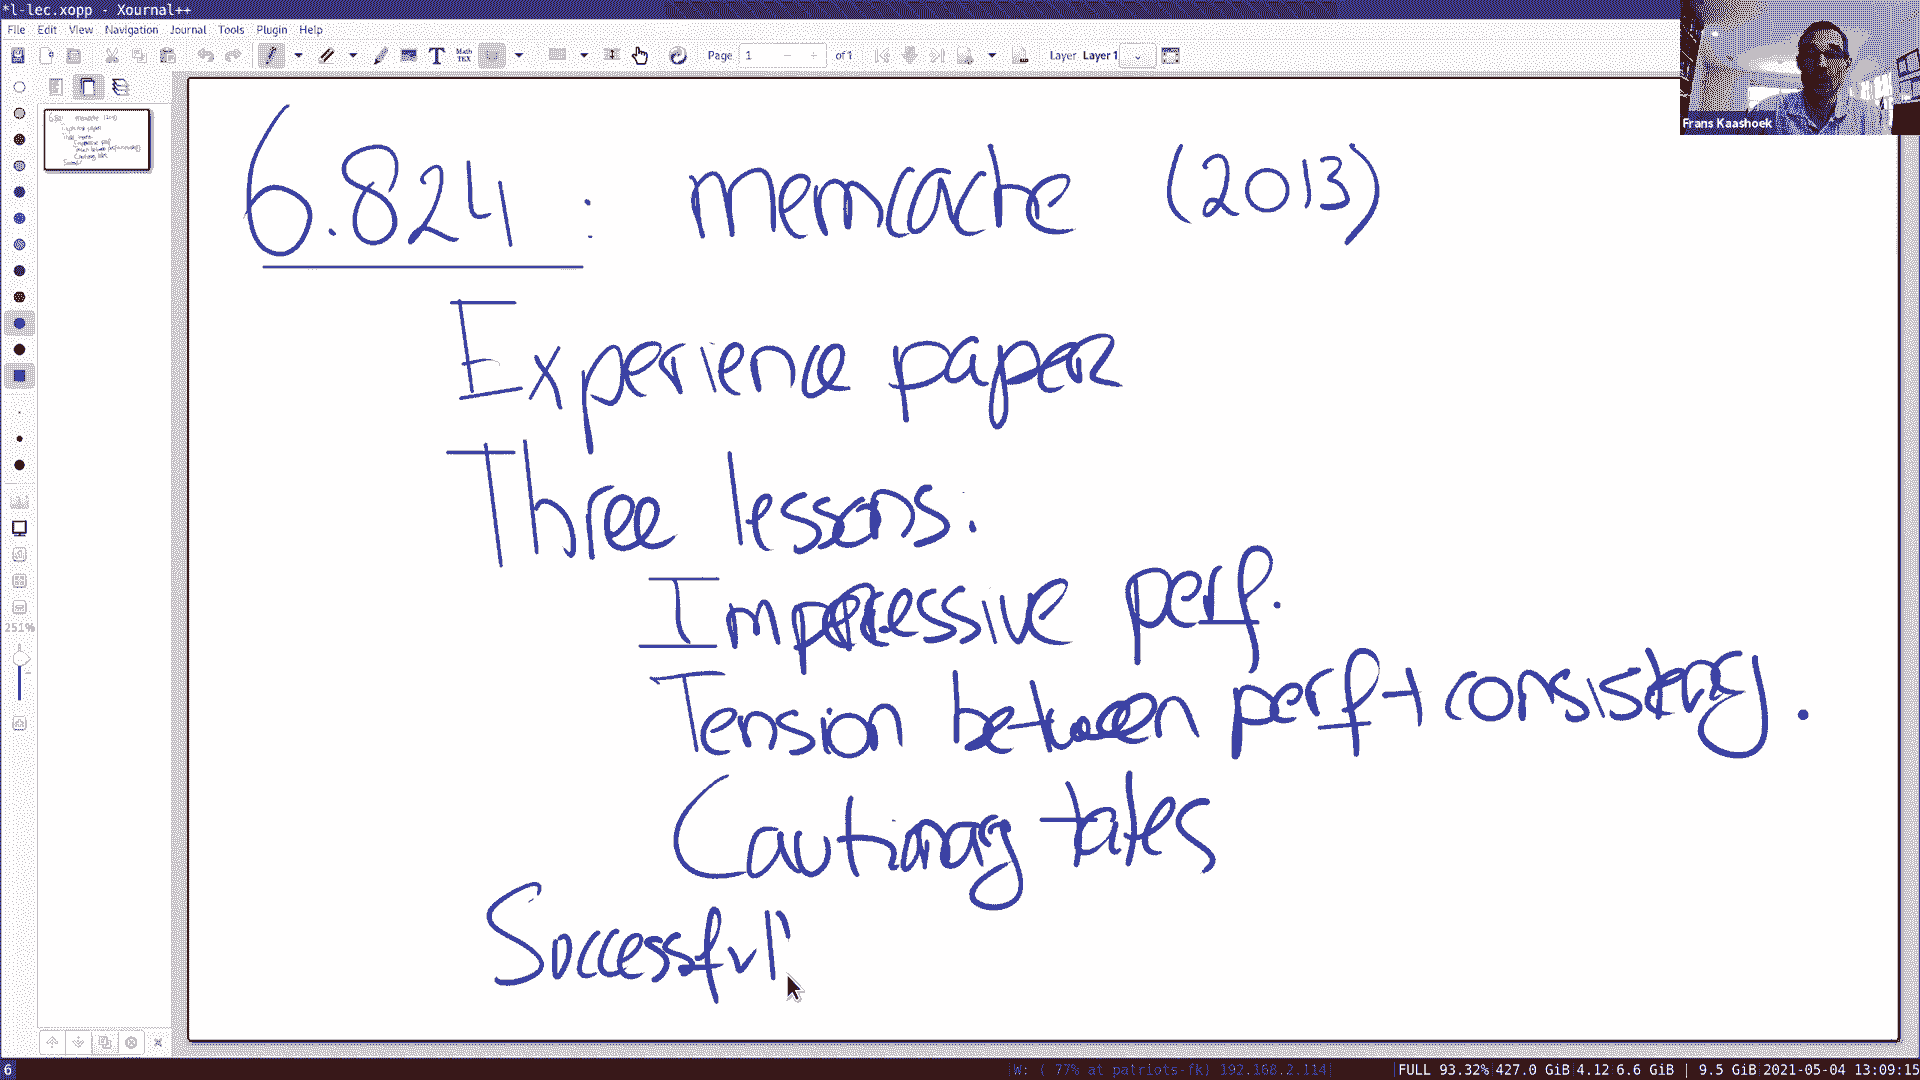 *l-lec.xopp - Xournal++
File Edit View Navigation Journal Tools Plugin Help
Page 1 of 1 Layer Layer 1
Frans Kaashoek
6.824 : memcache (2013)
Experience paper
Three lessons.
Impressive perf.
Tension between perf + consistency.
Cautionary tales
Successful
251%
6 W: ( 77% at patriots-fk) 192.168.2.114| |FULL 93.32%|427.0 GiB|4.12|6.6 GiB | 9.5 GiB|2021-05-04 13:09:15